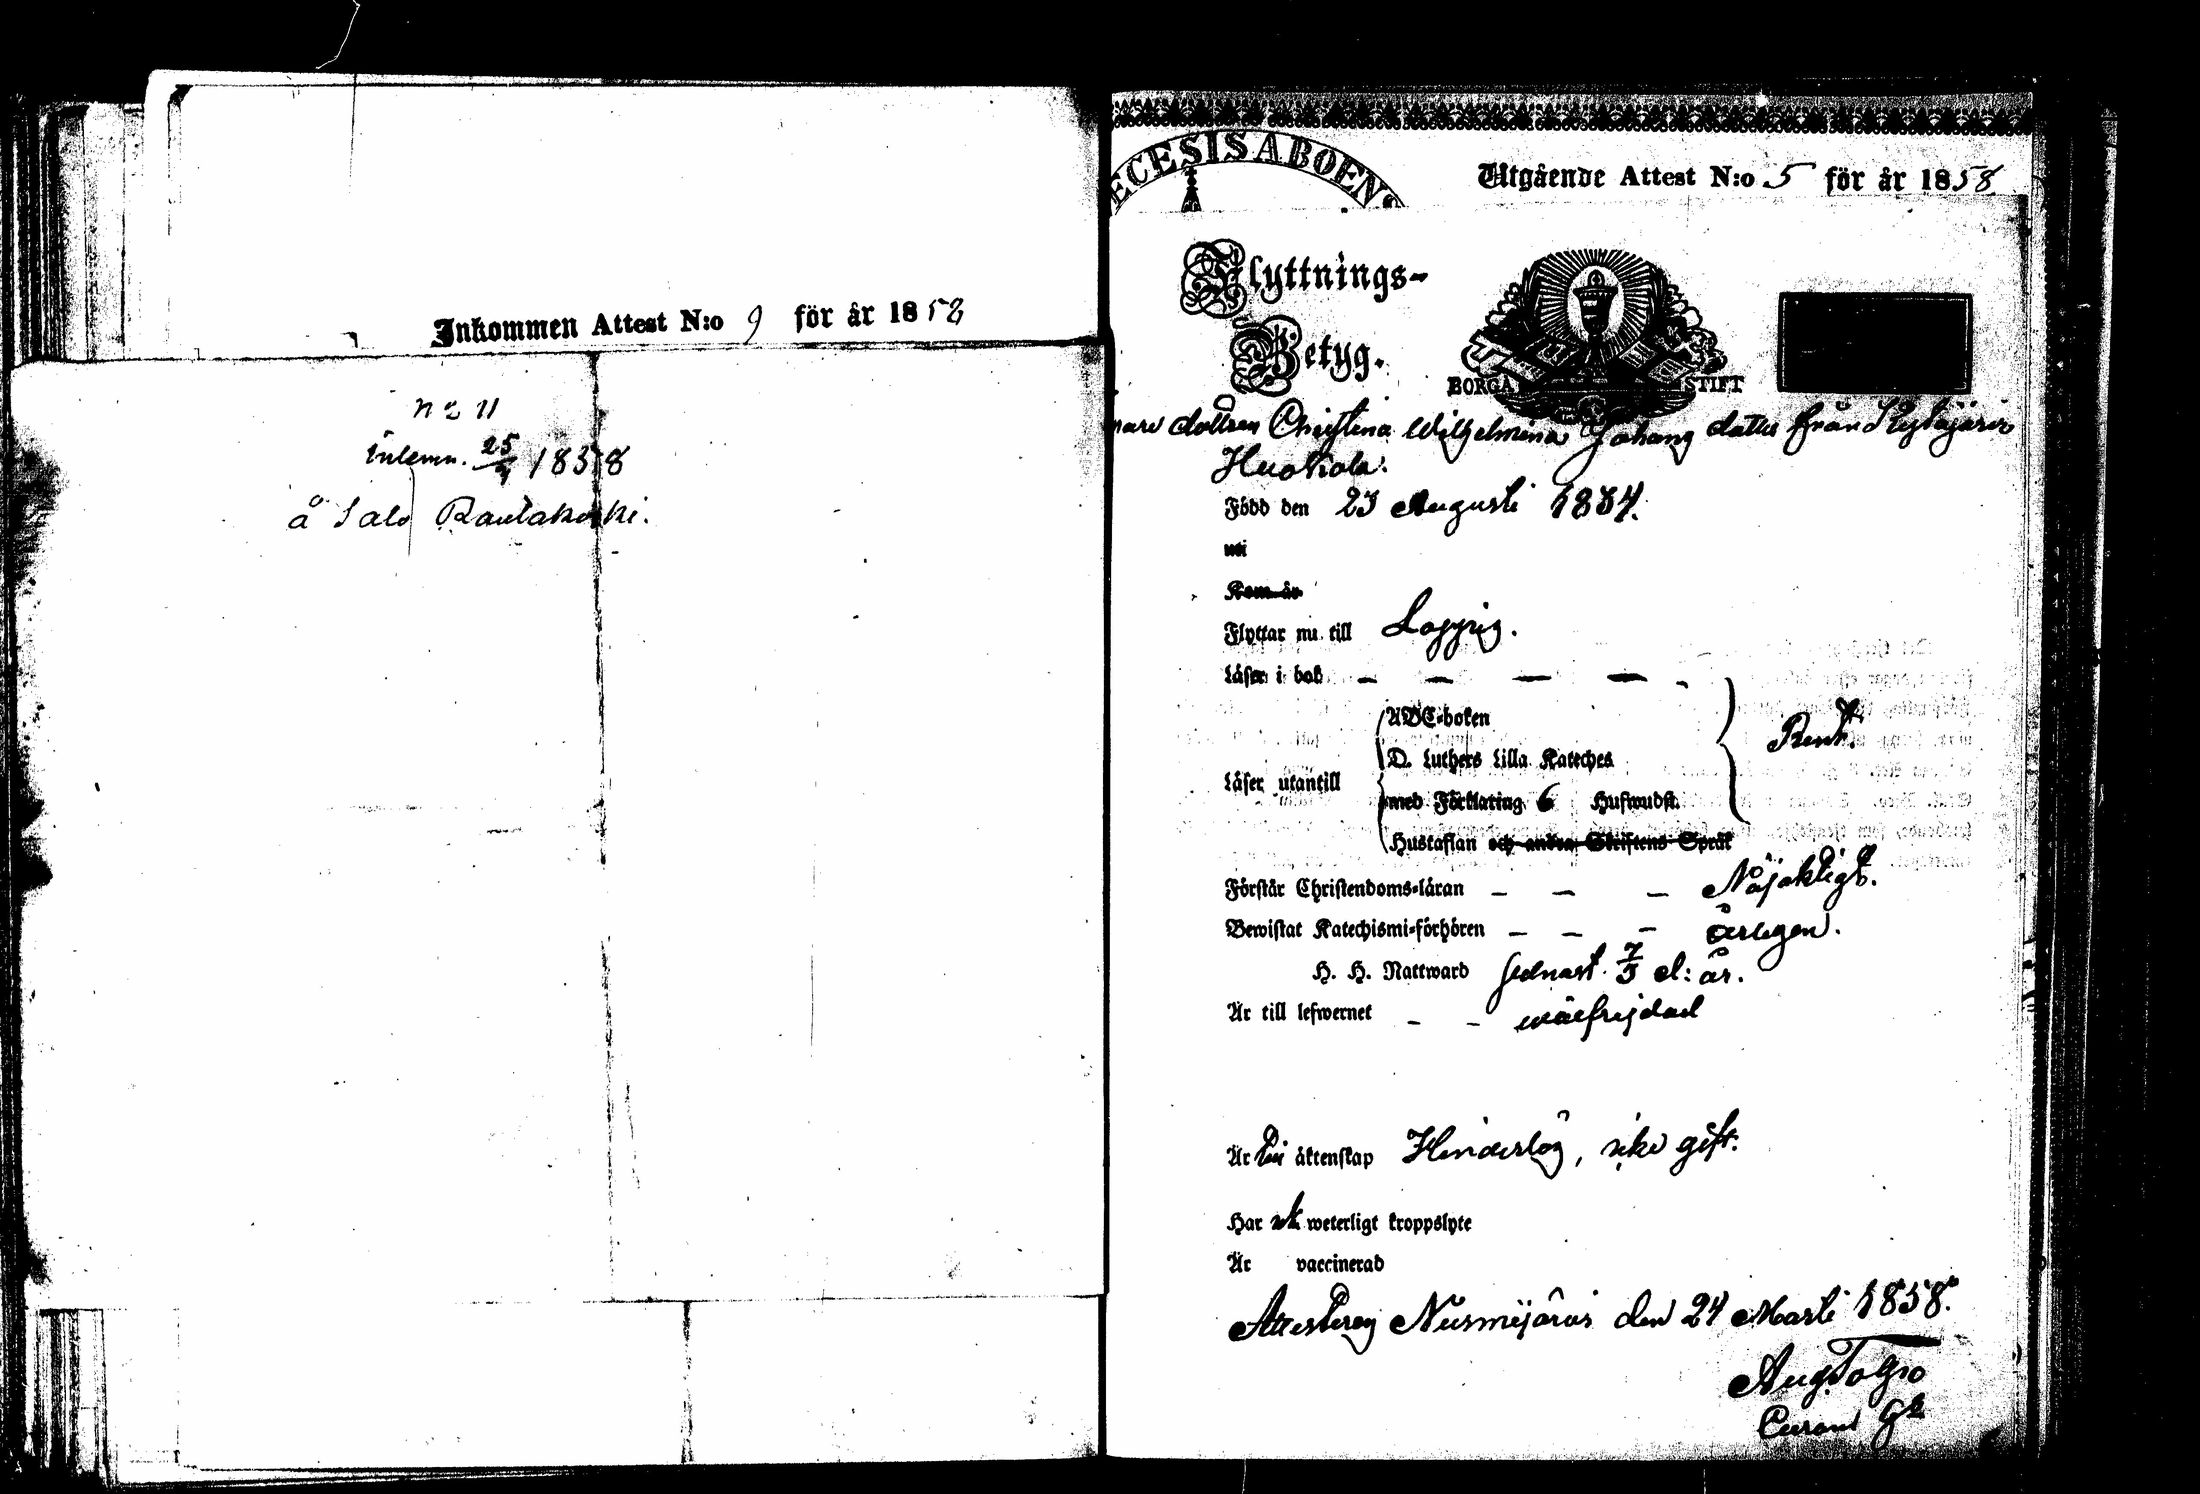 Inkommen Attest N:o 9 för år 1858
N 2 11
Inlemn. 25/4 1858
å Salo Rautakoski.
ECESIS ABOENS
Utgående Attest N:o 5 för år 1858
Flyttnings-
Betyg.
BORGÅ STIFT
dottren Christina Wilhelmina Johans dotter från
Huokola.
Född den 23 Augusti 1834.
uti
Kom år
Flyttar nu till Loppis.
Läser i bok — — — — -
ABC-boken
D. Luthers Lilla Kateches Rent.
Läser utantill
med Förklaring 6 Hufwudst.
Hustaflan och andra Skriftens Språk
Förstår Christendoms-läran — — — Nöjaktigt.
Bewistat Katechismi-förhören — — — årligen.
H. H. Nattward sednast 7/3 d: år.
Är till lefwernet — — wälfrejdad
Är till äktenskap Hinderlös, icke gift.
Har ick weterligt kroppslyte
Är vaccinerad
Attesteras Nurmijärvi den 24 Marti 1858.
Aug.